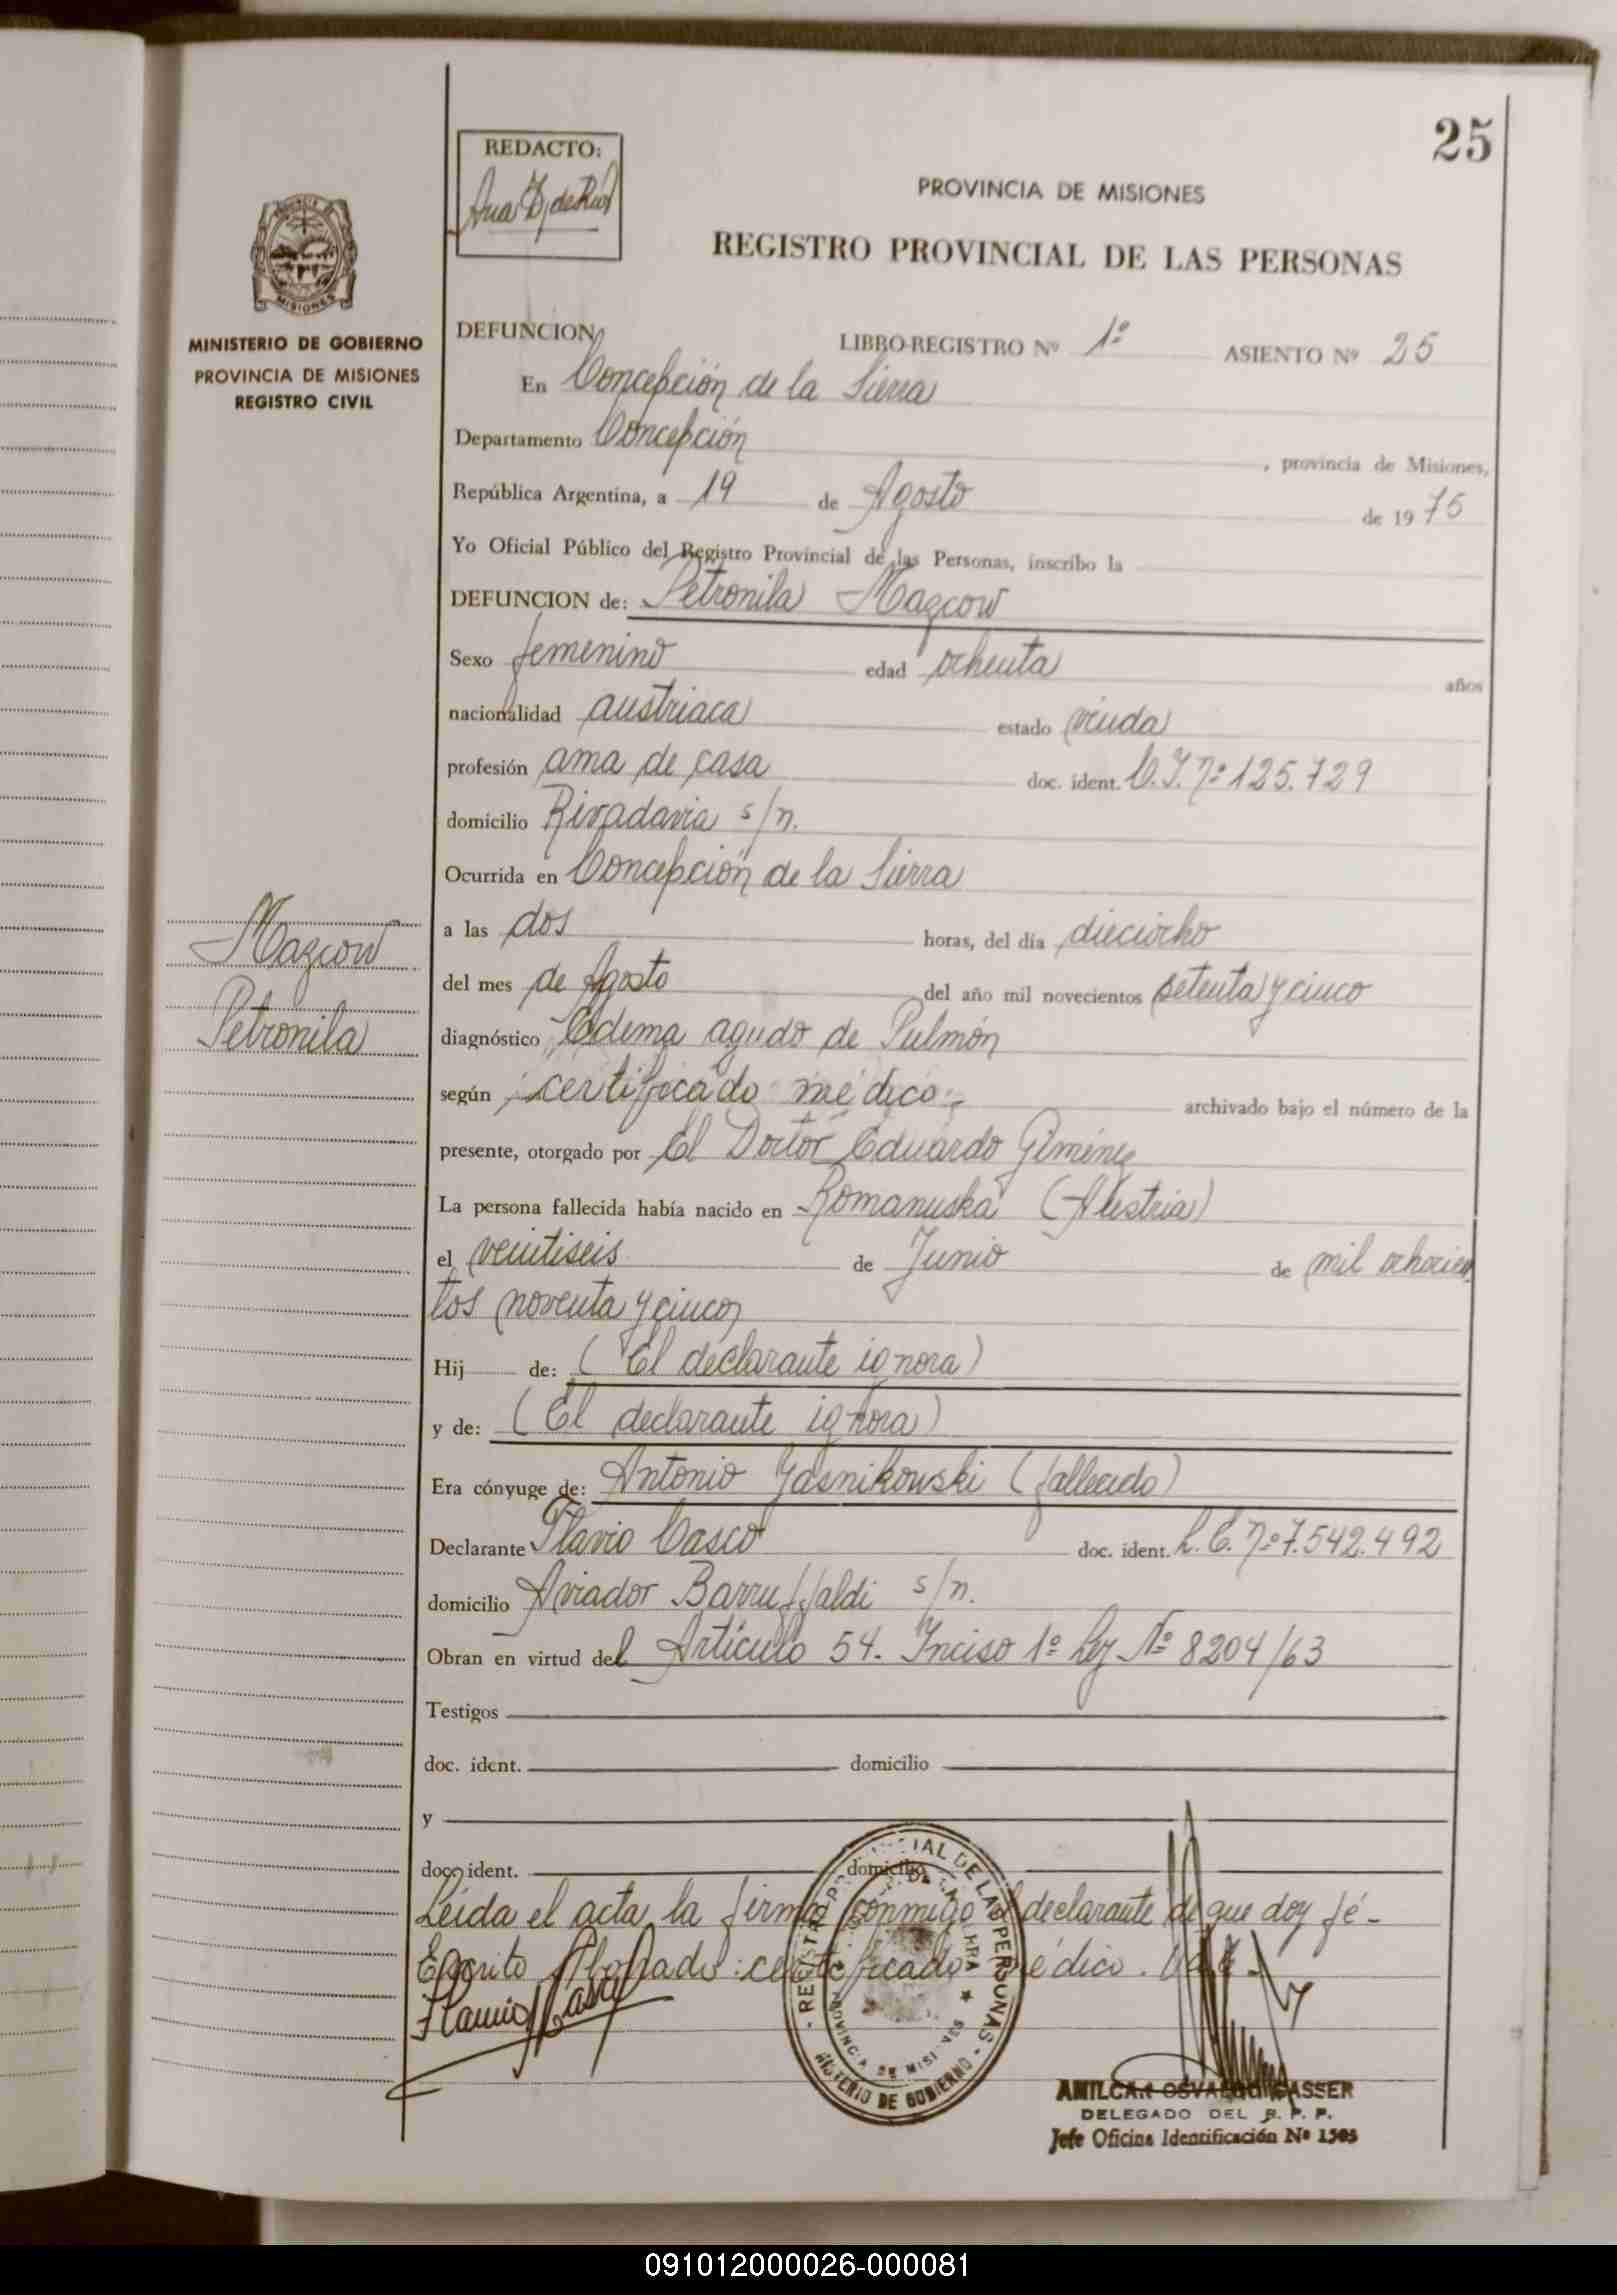 25
REDACTO:
PROVINCIA DE MISIONES
REGISTRO PROVINCIAL DE LAS PERSONAS
MISIONES
MINISTERIO DE GOBIERNO
PROVINCIA DE MISIONES
REGISTRO CIVIL
DEFUNCION
LIBRO-REGISTRO Nº 1º ASIENTO Nº 25
En Concepción de la Sierra
Departamento Concepción , provincia de Misiones,
República Argentina, a 19 de Agosto de 1975
Yo Oficial Público del Registro Provincial de las Personas, inscribo la
DEFUNCION de: Petronila Mazcow
Sexo femenino edad ochenta años
nacionalidad austriaca estado viuda
profesión ama de casa doc. ident. C.I. nº 125.729
domicilio Rivadavia s/n.
Ocurrida en Concepción de la Sierra
a las dos horas, del día dieciocho
del mes de Agosto del año mil novecientos setenta y cinco
Mazcow
Petronila
diagnóstico Edema agudo de Pulmón
según certificado médico archivado bajo el número de la
presente, otorgado por El Doctor Eduardo Giménez
La persona fallecida había nacido en Romanuska (Austria)
el veintiseis de Junio de mil ochocien
tos noventa y cinco
Hij de: (El declarante ignora)
y de: (El declarante ignora)
Era cónyuge de: Antonio Yasnikowski (fallecido)
Declarante Flavio Casco doc. ident. L.E. nº 7.542.492
domicilio Aviador Barruffaldi s/n.
Obran en virtud del Artículo 54. Inciso 1º Ley Nº 8204/63
Testigos
doc. ident. domicilio
y
doc. ident. domicilio
Leida el acta la firma conmigo el declarante de que doy fé-
Escrito s/borrado: certificado médico. Vale-
REGISTRO PROVINCIAL DE LAS PERSONAS
PROVINCIA DE MISIONES
MINISTERIO DE GOBIERNO
AMILCAR OSVALDO GASSER
DELEGADO DEL R. P. P.
Jefe Oficina Identificación Nº 1505
091012000026-000081